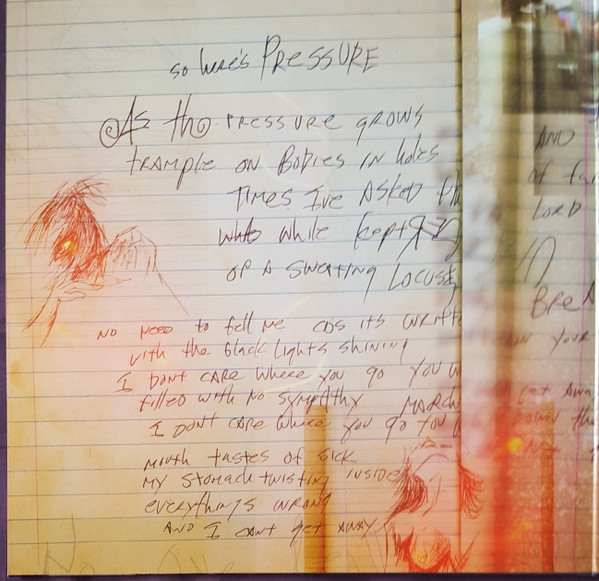 so here's PRESSURE
As tho PRESSURE GROWS
trample on Bodies in holes
Times I've Asked
while kept
of A Sweating Locust
AND
of
LORD
BreA
NO NEED to tell me cos its writt
with the black lights shining
YOUR
I DONT CARE Where you go you w
Get AWA
filled with no sympathy MARCH
DOWN the
I DONT CARE where you go you
mouth tastes of sick
MY stomach twisting inside
everythings wrong
AND I cant get AWAY